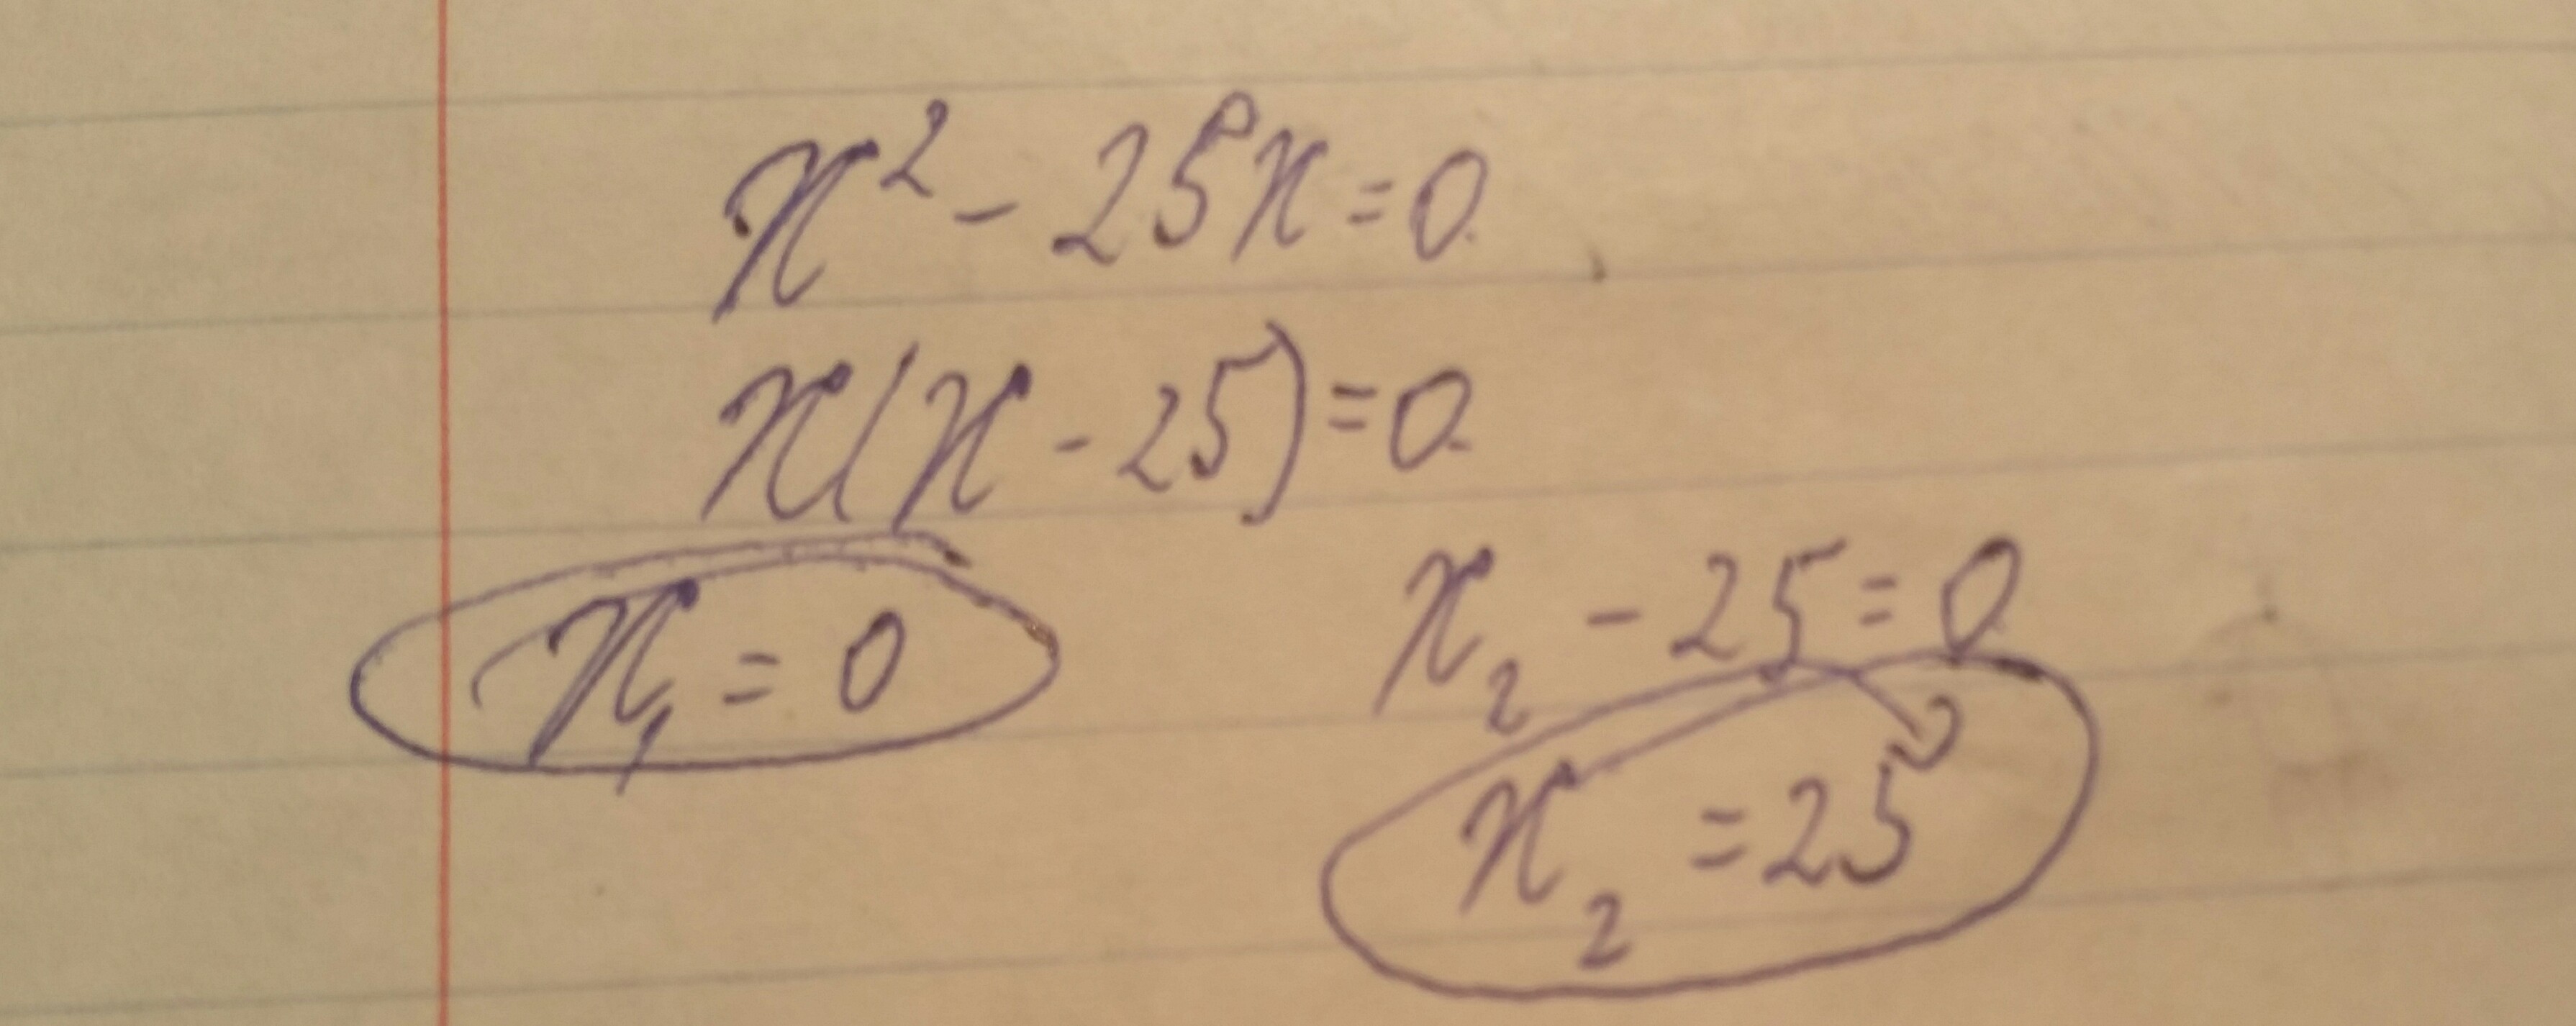 x² - 25x = 0
x(x - 25) = 0
x₁ = 0
x₂ - 25 = 0
x₂ = 25